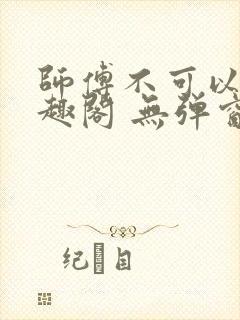 師傅不可以
趣閣 無弹窗
纪 目